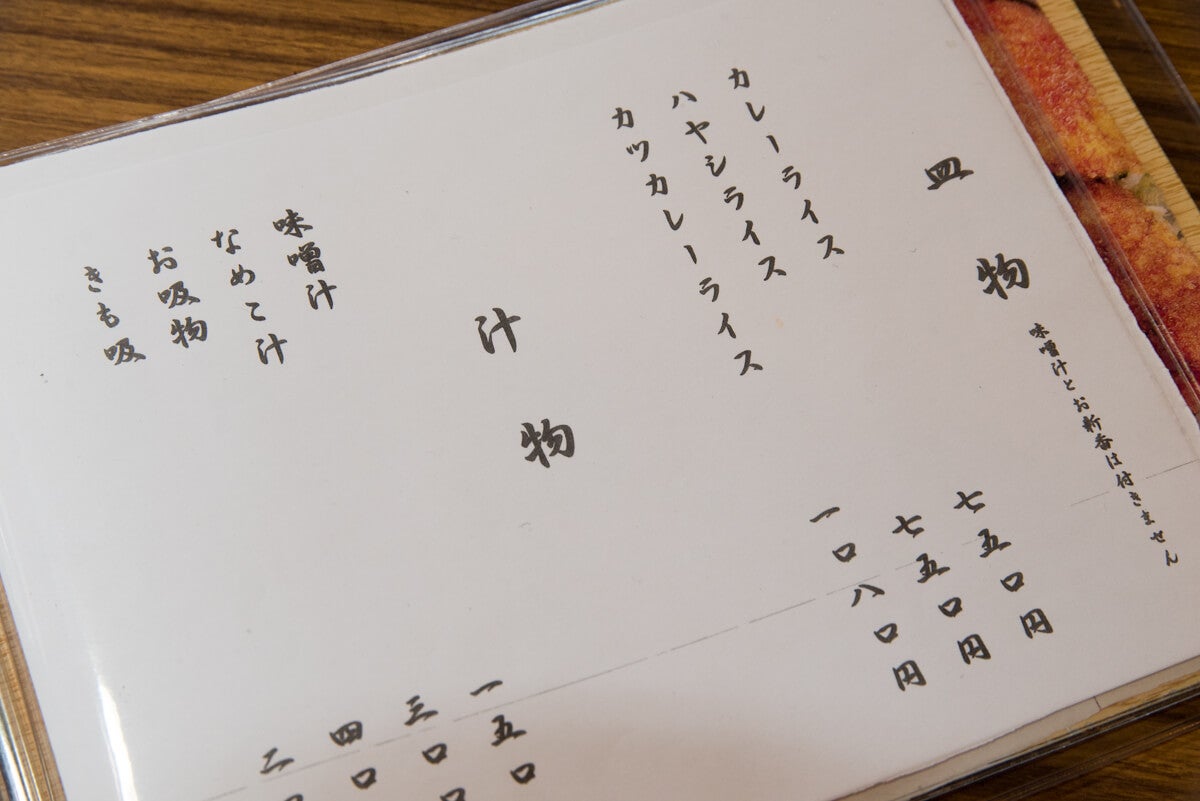 皿物
味噌汁とお新香は付きません
カレーライス 七五〇円
ハヤシライス 七五〇円
カツカレーライス 一〇八〇円
汁物
味噌汁 一五〇
なめこ汁 三〇〇
お吸物 四〇
きも吸 二〇